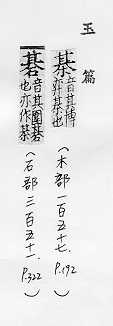 玉篇
棊 音其博亦弈棊也（木部一百五十七、P.192）
碁 音其圍碁也亦作棊（石部三百五十一、P.322）